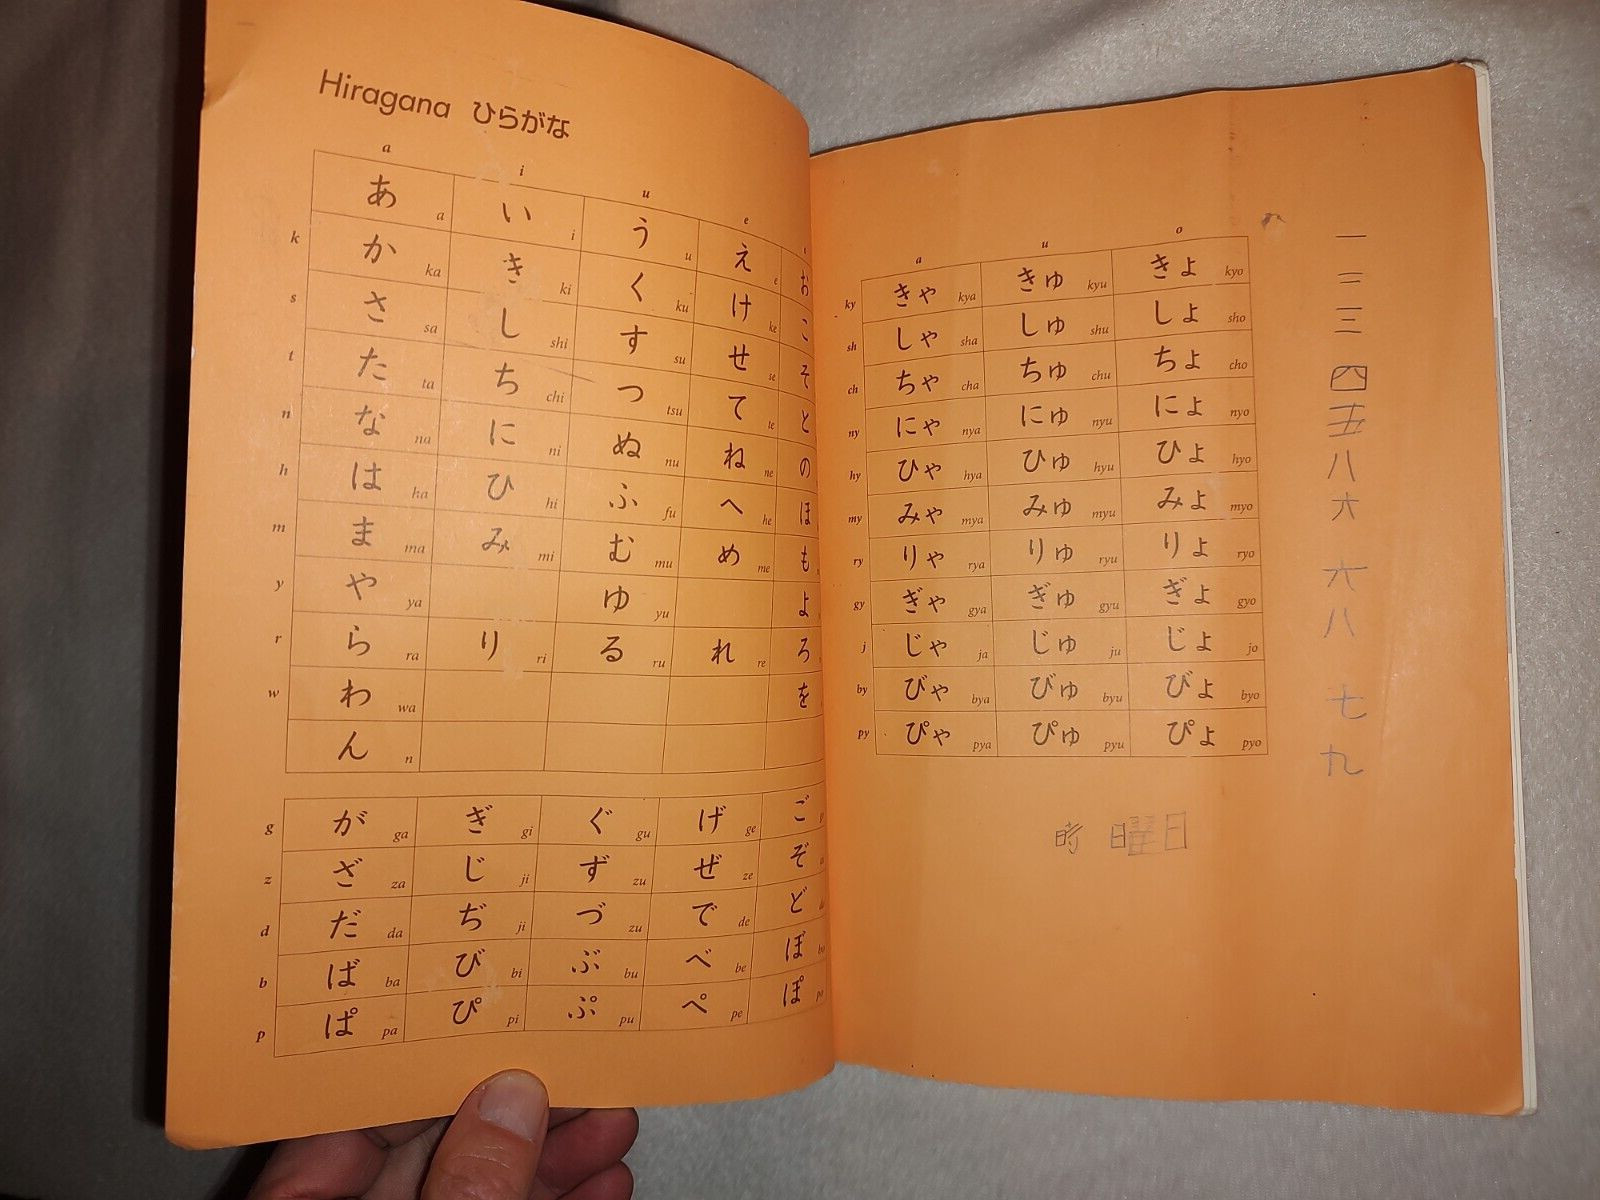 Hiragana ひらがな
a i u e
あ a い i う u え e お
k か ka き ki く ku け ke こ
s さ sa し shi す su せ se そ
t た ta ち chi つ tsu て te と
n な na に ni ぬ nu ね ne の
h は ha ひ hi ふ fu へ he ほ
m ま ma み mi む mu め me も
y や ya ゆ yu よ
r ら ra り ri る ru れ re ろ
w わ wa を
ん n
g が ga ぎ gi ぐ gu げ ge ご
z ざ za じ ji ず zu ぜ ze ぞ
d だ da ぢ ji づ zu で de ど
b ば ba び bi ぶ bu べ be ぼ bo
p ぱ pa ぴ pi ぷ pu ぺ pe ぽ po
a u o
ky きゃ kya きゅ kyu きょ kyo
sh しゃ sha しゅ shu しょ sho
ch ちゃ cha ちゅ chu ちょ cho
ny にゃ nya にゅ nyu にょ nyo
hy ひゃ hya ひゅ hyu ひょ hyo
my みゃ mya みゅ myu みょ myo
ry りゃ rya りゅ ryu りょ ryo
gy ぎゃ gya ぎゅ gyu ぎょ gyo
j じゃ ja じゅ ju じょ jo
by びゃ bya びゅ byu びょ byo
py ぴゃ pya ぴゅ pyu ぴょ pyo
時 曜日
一
二
三
四
五
八
六
六
八
七
九